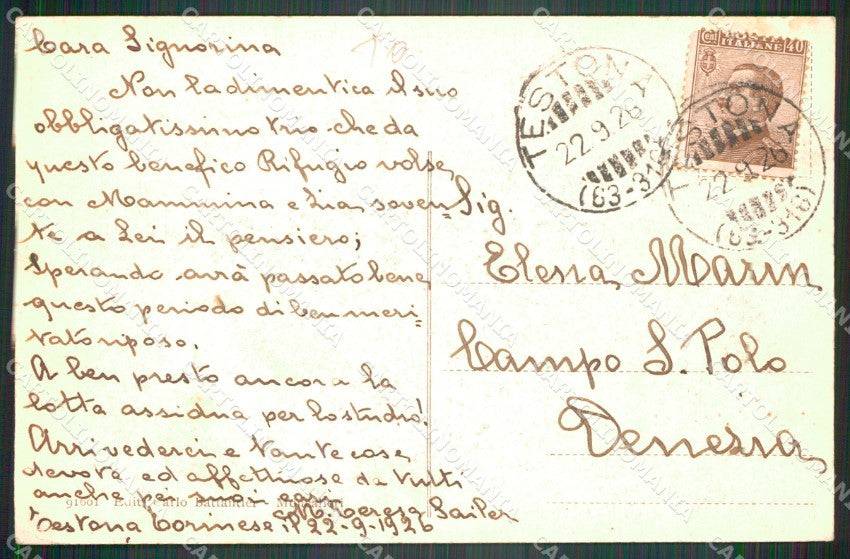 Cara Signorina
Non la dimentica il suo
obbligatissimo trio che da
questo benefico Rifugio volse,
con Mammina e Zia, soven=
te a Lei il pensiero;
Sperando avrà passato bene
questo periodo di ben meri=
tato riposo.
A ben presto ancora la
lotta assidua per lo studio!
Arrivederci e tante cose
devote ed affettuose da tutti
anche pei suoi cari
M. Teresa Sailer
Testona Torinese il 22-9-1926
91601 Ediz. Carlo
Sig.
Elena Marin
Campo S. Polo
Venezia
CMI ITALIANE 40
TESTONA
22.9.26
(63-316)
TESTONA
22.9.26
(63-316)
CARTOLINOMANIA